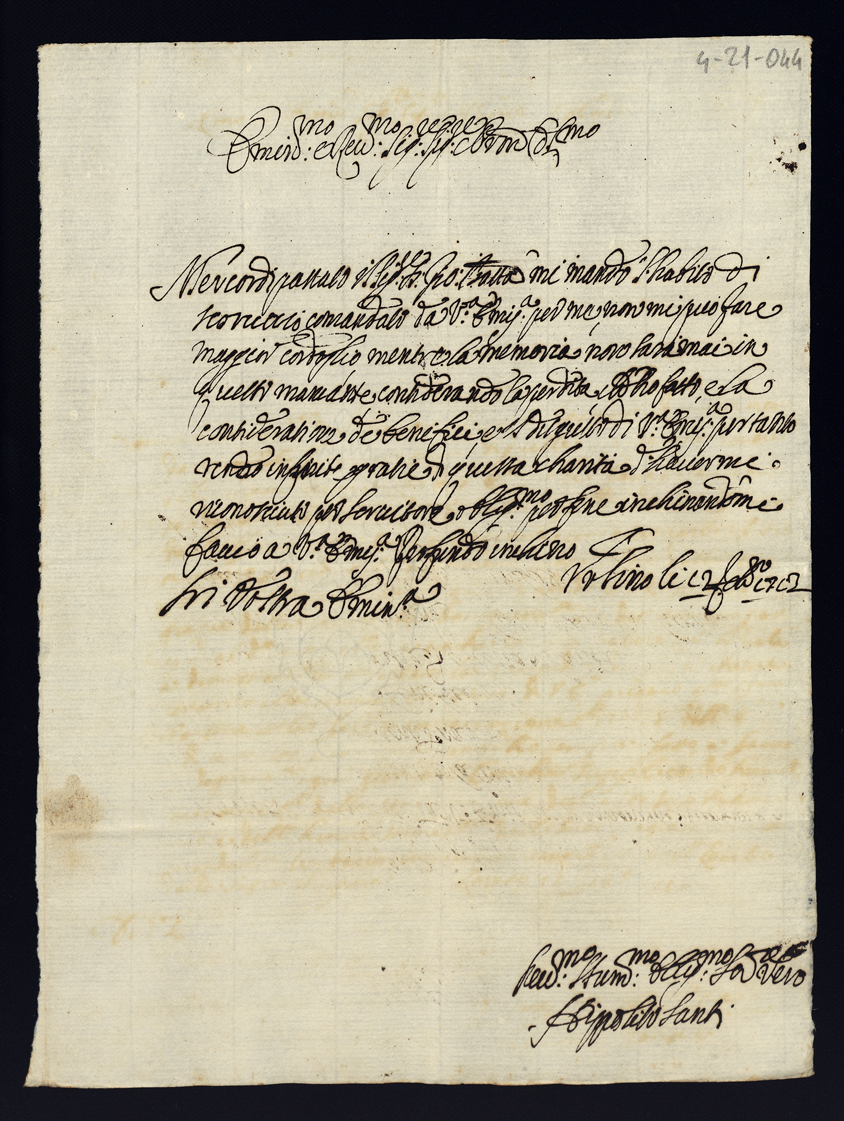 4-21-044
Emin.mo e Reu.mo Sig.re Sig.re e Pron Col.mo
Mercordi passato il Sig.r Gio: Batta mi mandò l'habito di
scoruccio comandato da V.ra Emin.a per me non mi può fare
maggior cordoglio mentre la memoria non sarà mai in
questo mancante considerando la perdita che ho fatto, e la
consideratione de benefici e di V.ra Emin.a per tanto
rendo infinite gratie di questa charità d'hauerme
riconosciuto per seruitore oblig.mo per fine inchinandome
faccio a V.ra Emin.a profondo inchino
Di Vostra Emin.a Urbino li 12 feb.ro 1712
Deu.mo Hum.mo Oblig.mo Ser Vero
Hippolito Santi